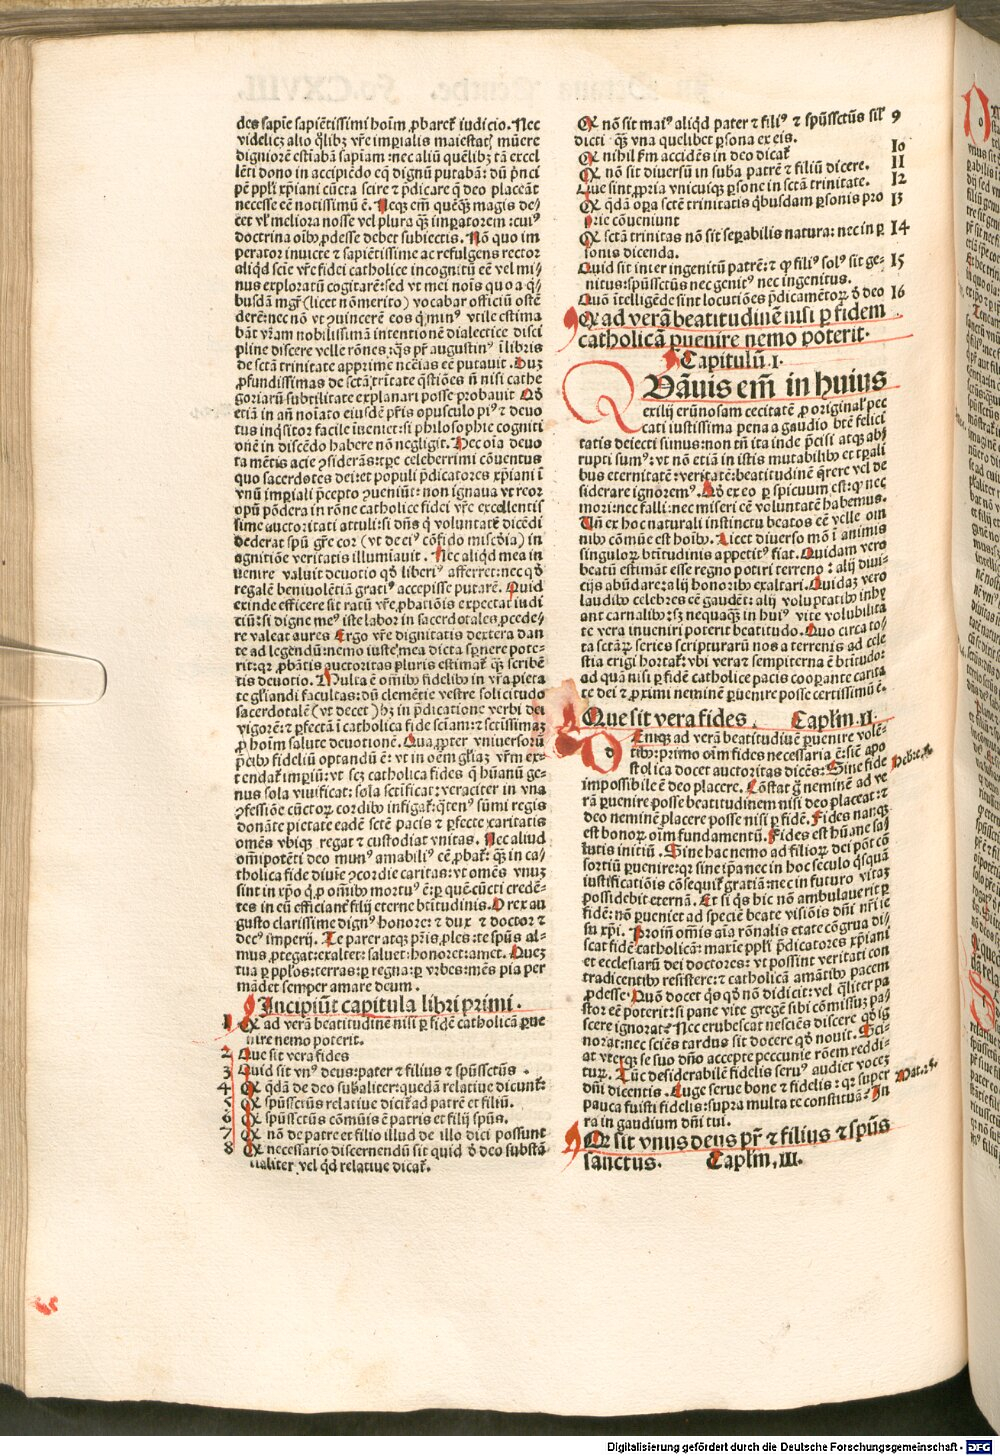 des sapiẽ sapiẽtissimi hoĩm ꝓbareť iudicio. Nec
videlicȝ alio q̃libȝ vr̃e imꝑialis maiestati mũere
digniorẽ estiabã sapiam : nec aliũ quẽlibȝ tã excel
lẽti dono in accipiẽdo eq̃ dignũ putabã: dũ pñci
pẽ ppl̃i xp̃iani cũcta scire ⁊ p̃dicare q̃ deo placeãt
necesse eẽ notissimũ ẽ. Neqȝ em̃ quẽqȝ magis de⸗
cet vl̓ meliora nosse vel plura qȝ imꝑatorem : cui⁹
doctrina oĩbꝰ ꝓdesse debet subiectis. Nõ quo im
perator inuicte ⁊ sapiẽtissime ac refulgens rector
aliq̃d sciẽ vr̃e fidei catholice incognitũ eẽ vel mi⸗
nus exploratũ cogitarẽ: sed vt mei nois quo a q̃⸗
busdã mgr̃ (licet nõ merito) vocabar officiũ ostẽ
derẽ: nec nõ vt ꝯuincerẽ eos q̃ min⁹ vtile estima
bãt vr̃am nobilissimã intentionẽ dialectice disci
pline discere velle rõnes : q̃s pr̃ augustin⁹ ĩ libris
de sctã trinitate apprime nccĩas eẽ putauit. Duȝ
ꝓfundissimas de sctã trinitate q̃stiões nĩ nisi cathe
goriarũ subtilitate explanari posse probauit. Qđ
etiã in añ noĩato eiusdẽ pr̃is opusculo pi⁹ ⁊ deuo
tus inq̃sitor facile iueniet: si philosophie cogniti
onẽ in discẽdo habere nõ negligit. Hec oĩa deuo
ta mẽtis acie ꝯsiderãs: tꝑe celeberrimi cõuentus
quo sacerdotes dei: et populi p̃dicatores xp̃iani ĩ
vnũ imꝑiali p̃cepto ꝯueniũt : non ignaua vt reor
opũ põdera in rõne catholice fidei vr̃e excellentis
sime auctoritati attuli: si dñs q̃ voluntatẽ dicẽdi
dederat spũ gr̃e cor (vt de ei⁹ cõfido misc̃dia) in
agnitiõe veritatis illumiauit . Nec aliq̃d mea in
uenire valuit deuotio qđ liberi⁹ afferret: nec qđ
regalẽ beniuolẽtiã grati⁹ accepisse putarẽ. Quid
exinde efficere sit ratũ vr̃e ꝓbatiõis expectat iudi
tiũ: si digne me⁹ iste labor in sacerdotales ꝓcede⸗
re valeat aures Ergo vr̃e dignitatis dextera dan
te ad legendũ: nemo iuste mea dicta spnere pote⸗
rit: qꝛ ꝓbãtis auctoritas pluris estimať qȝ scribẽ
tis deuotio. Multa ẽ oĩmbꝰ fidelibꝰ in vr̃a pieta
te gl̃iandi facultas: dũ clemẽtie vestre solicitudo
sacerdotalẽ (vt decet) hȝ in p̃dicatione verbi dei
vigorẽ: ⁊ ꝑfectã ĩ catholica fide sciam: ⁊ sctissimaȝ
ꝓ hoĩm salute deuotionẽ. Qua ꝓpter vniuersorũ
p̃cibꝰ fideliũ optandũ ẽ: vt in oẽm gl̃iaȝ vr̃m ex⸗
tendať imperiũ: vt scȝ catholica fides q̃ hũanũ ge⸗
nus sola viuificat: sola sctificat: veraciter in vna
ꝯfessiõe cũctoꝝ cordibꝰ infigať: q̃ten⁹ sũmi regis
donãte pietate eadẽ sctẽ pacis ⁊ ꝑfecte caritatis
omẽs vbiqȝ regat ⁊ custodiat vnitas. Nec aliud
oĩm̃potẽti deo mun⁹ amabili⁹ eẽ ꝓbať: qȝ in ca⸗
tholica fide diuĩe ꝯcordie caritas: vt omẽs vnuȝ
sint in xp̃o q̃ ꝓ oĩmbꝰ mortu⁹ ẽ: ꝑ quẽ cũcti credẽ⸗
tes in eũ efficianť filij eterne btitudinis. O rex au
gusto clarissime dign⁹ honore: ⁊ dux ⁊ doctor ⁊
dec⁹ imperij. Te pater atqȝ pr̃is, ples: te spũs al⸗
mus ꝓtegat: exaltet: saluet: honoret: amet. Queȝ
tua ꝑ ppl̃os: terras: ꝑ regna: ꝑ vrbes: mẽs pia per
mãdet semper amare deum.
Incipiũt capitula libri primi.
1 Q ad verã beatitudinẽ nisi ꝑ fidẽ catholicã ꝑue
nire nemo poterit.
2 Que sit vera fides
3 Quid sit vn⁹ deus: pater ⁊ filius ⁊ spũssctũs .
4 Q q̃dã de deo substãtialiter: quedã relatiue dicunť:
5 Q spũssctũs relatiue diciť ad patrẽ et filiũ.
6 Q spũssctũs cõmũis ẽ patris et filij spũs.
7 Q nõ de patre et filio illud de illo dici possunt
8 Q necessario discernendũ sit quid đ deo substã
tialiter, vel q̃d relatiue dicať.
Q nõ sit mai⁹ aliq̃d pater ⁊ fili⁹ ⁊ spũssctũs sil̓ 9
dicti qȝ vna quelibet ꝑsona ex eis.
Q nihil sm̃ accidẽs in deo dicať 10
Q nõ sit diuersũ in suba patrẽ ⁊ filiũ dicere. 11
Que sint ꝓpria vnicuiqȝ ꝑsone in sctã trinitate. 12
Q q̃dã oꝑa sctẽ trinitatis q̃busdam ꝑsonis pro 13
prie cõueniunt
Q sctã trinitas nõ sit seꝑabilis natura: nec in ꝑ 14
sonis dicenda.
Quid sit inter ingenitũ patrẽ: ⁊ ꝙ fili⁹ sol⁹ sit ge⸗ 15
nitus: spũssctũs nec genit⁹ nec ingenitus.
Quõ ĩtelligẽde sint locutiões p̃dicamẽtoꝝ đ deo 16
Q ad verã beatitudinẽ nisi ꝑ fidem
catholicã ꝑuenire nemo poterit.
Capitulũ .I.
Qvãuis em̃ in huius
exilij erũnosam cecitatẽ ꝓ originali pec
cati iustissima pena a gaudio btẽ felici
tatis deiecti sumus: non tñ ita inde p̃cisi atqȝ abi
rupti sum⁹: vt nõ etiã in istis mutabilibꝰ et tꝑali
bus eternitatẽ: veritatẽ: beatitudinẽ q̃rere vel de
siderare ignorem⁹. Qđ ex eo ꝑ spicuum est: q̃ nec
mori: nec falli: nec miseri eẽ voluntatẽ habemus.
Vñ ex hoc naturali instinctu beatos eẽ velle om
nibꝰ cõmũe est hoĩbꝰ. Licet diuerso mõ ĩ animis
singuloꝝ btitudinis appetit⁹ fiat. Quidam vero
beatũ estimãt esse regno potiri terreno : alij diui⸗
cijs abũdare: alij honoribꝰ exaltari. Quidaȝ vero
laudibꝰ celebres eẽ gaudẽt: alij voluptatibꝰ inhi
ant carnalibꝰ: sȝ nequaqȝ in hui⁹ vite volubilita
te vera inueniri poterit beatitudo. Quo circa to⸗
ta sctãꝝ series scripturarũ nos a terrenis ad cele
stia erigi hortať: vbi vera ⁊ sempiterna ẽ btitudo:
ad quã nisi ꝑ fidẽ catholice pacis cooꝑante carita
te dei ⁊ ꝓximi neminẽ ꝑuenire posse certissimũ ẽ.
Que sit vera fides . Capl̃m .II.
Deniqȝ ad verã beatitudinẽ ꝑuenire volẽ⸗
tibꝰ: primo oĩm fides necessaria ẽ: siẽ apo
stolica docet auctoritas dicẽs: Sine fide Hebre.
impossibile ẽ deo placere. Cõstat g̃ neminẽ ad ve
rã ꝑuenire posse beatitudinem nisi deo placeat: ⁊
deo neminẽ placere posse nisi ꝑ fidẽ. Fides nanqȝ
est bonoꝝ oĩm fundamentũ. Fides est hũane sal
lutis initiũ. Sine hac nemo ad filioꝝ dei põt cõ
sortiũ ꝑuenire: qꝛ sine ip̃a nec in hoc seculo q̃squã
iustificatiõis cõsequiť gratiã: nec in futuro vitaȝ
possidebit eternã. Et si q̃s hic nõ ambulauerit ꝑ
fidẽ: nõ ꝑueniet ad speciẽ beate visiõis dñi nr̃i ie
su xp̃i. Proĩn omĩs aĩa rõnalis etate cõgrua di⸗
scat fidẽ catholicã: maxie ppl̃i p̃dicatores xp̃iani
et ecclesiarũ dei doctores: vt possint veritati con
tradicentibꝰ resistere: ⁊ catholicã amãtibꝰ pacem
ꝓdesse. Quõ docet q̃s qđ nõ didicit: vel q̃liter pa
stor eẽ poterit: si pane vite gregẽ sibi cõmissuȝ pa⸗
scere ignorať Nec erubescat nesciẽs discere qđ ig
norat: nec sciẽs tardus sit docere qđ nouit. Sci⸗
at vterqȝ se suo dño accepte peccunie rõem reddi⸗
tuꝝ. Tũc desiderabilẽ fidelis seru⁹ audiet voceȝ
dñi dicentis. Euge serue bone ⁊ fidelis : qꝛ super Mat.
pauca fuisti fidelis: supra multa te constituã. In
tra in gaudium dñi tui.
Q sit vnus deus pr̃ ⁊ filius ⁊ spũs
sanctus. Capl̃m .III.
Digitalisierung gefördert durch die Deutsche Forschungsgemeinschaft - DFG